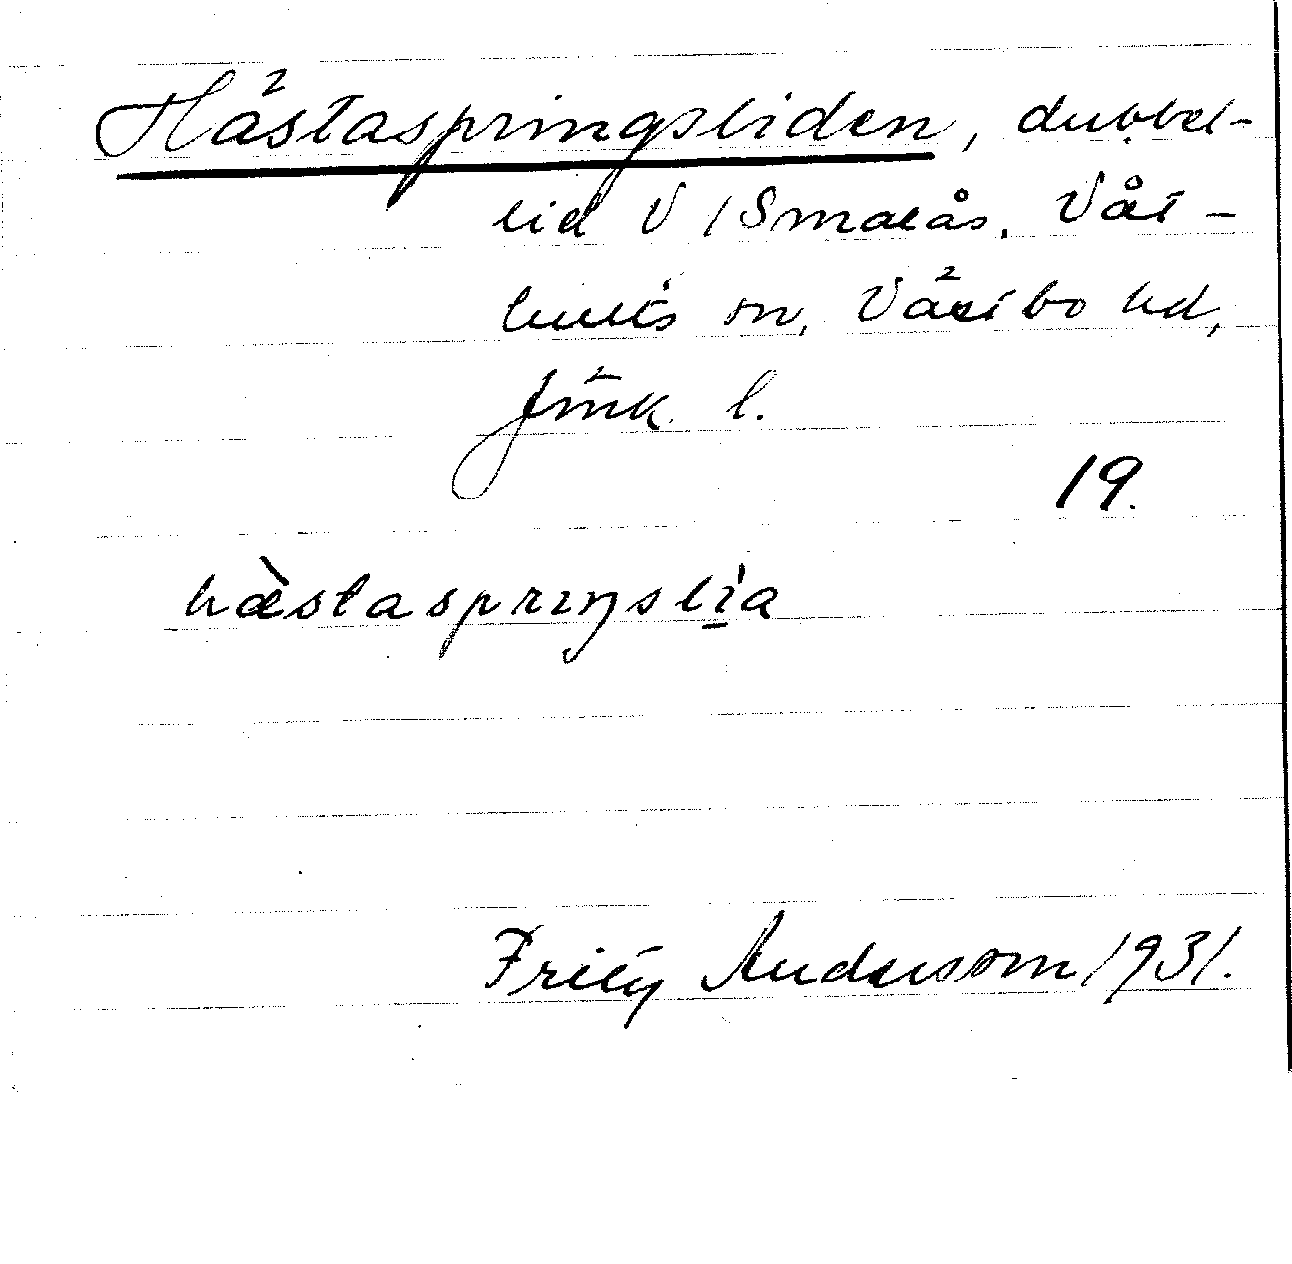 Hästaspringsliden, dubbel-
lid V /Smalås. Våt-
hults sn, Västbo hd,
Jönk. l.
19.
hæ̀staspriŋslía
Fritz Andersson 1931.